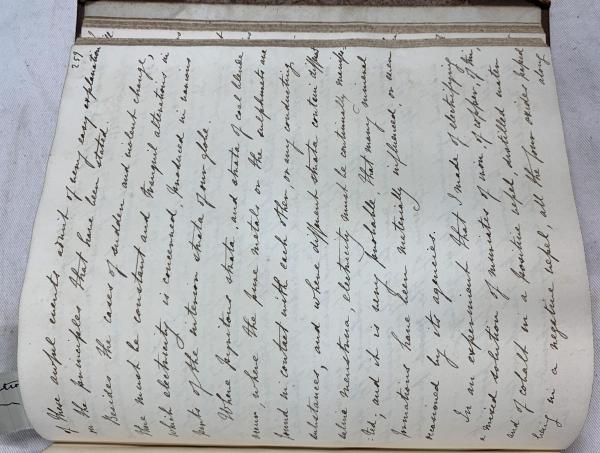 259
of these awful events, admit of very easy explanation
on the principles that have been stated
Besides the cases of sudden and violent change,
there must be constant and tranquil alterations in
which electricity is concerned, produced in various
parts of the interior strata of our globe
Where Pyritous strata and strata of coal blende
occur where the pure metals or the sulphurets are
found in contact with each other, or any conducting
substances, and where different strata contain different
saline menstrua, electricity must be continually manifes-
-ted; and it is very probable that many mineral
formations have been materially influenced or even
occasioned by its agencies.
In an experiment that I made of electrifying
a mixed solution of muriates of iron, of copper, of tin,
and of cobalt in a positive vessel, distilled water
being in a negative vessel, all the four oxides passed
along